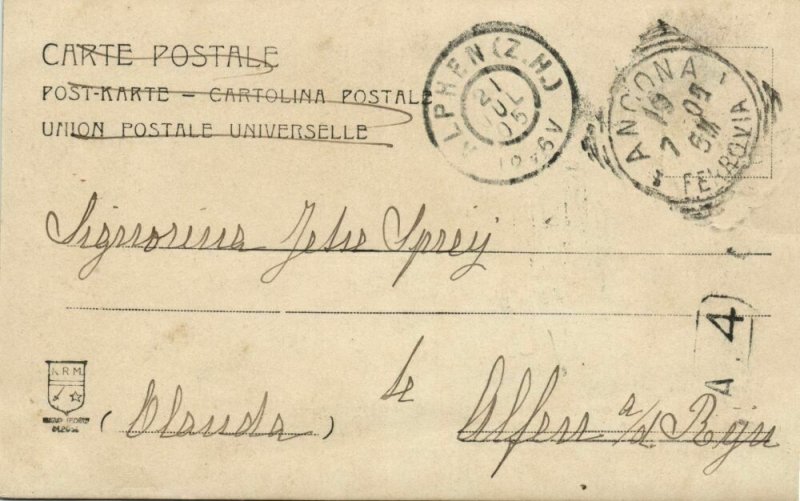 CARTE POSTALE
POST-KARTE – CARTOLINA POSTALE
UNION POSTALE UNIVERSELLE
ALPHEN (Z.H.)
21
JUL
05
ANCONA
FERROVIA
19
7 05
Signorina Jetse Spreij
A 4
N.R.M.
(Olanda) te Alfen a/d Rijn